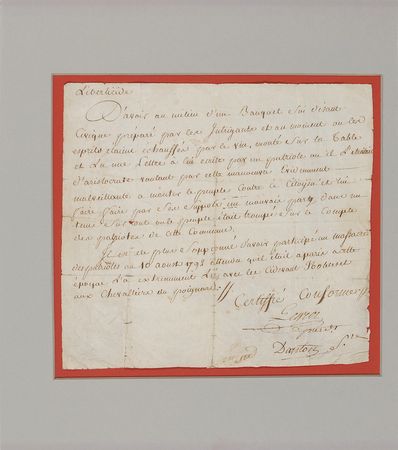 Liberticide
D'avoir au milieu d'un Banquet soi disant
Civique préparé par les Intrigants et au moment ou les
esprits étaient échauffés par le vin, monté sur la Table
et Lu une Lettre à lui ecrite par un patriote ou il
d'aristocrate voulant par cette manoeuvre Evidemment
malveillante a monter le peuple contre le Citoyen et lui
faire faire par un mauvais party dans un
tems ou le peuple était trompé sur le Compte
des patriotes de cette Commune.
Je suis de plus a d'avoir participé au massacre
des patriotes au 10 aoust 1792 attendu qu'il était a paris a cette
époque L'a extremement Lié avec les Cidevant Nobles et
aux Chevaliers du poignard.
Certiffié Conforme